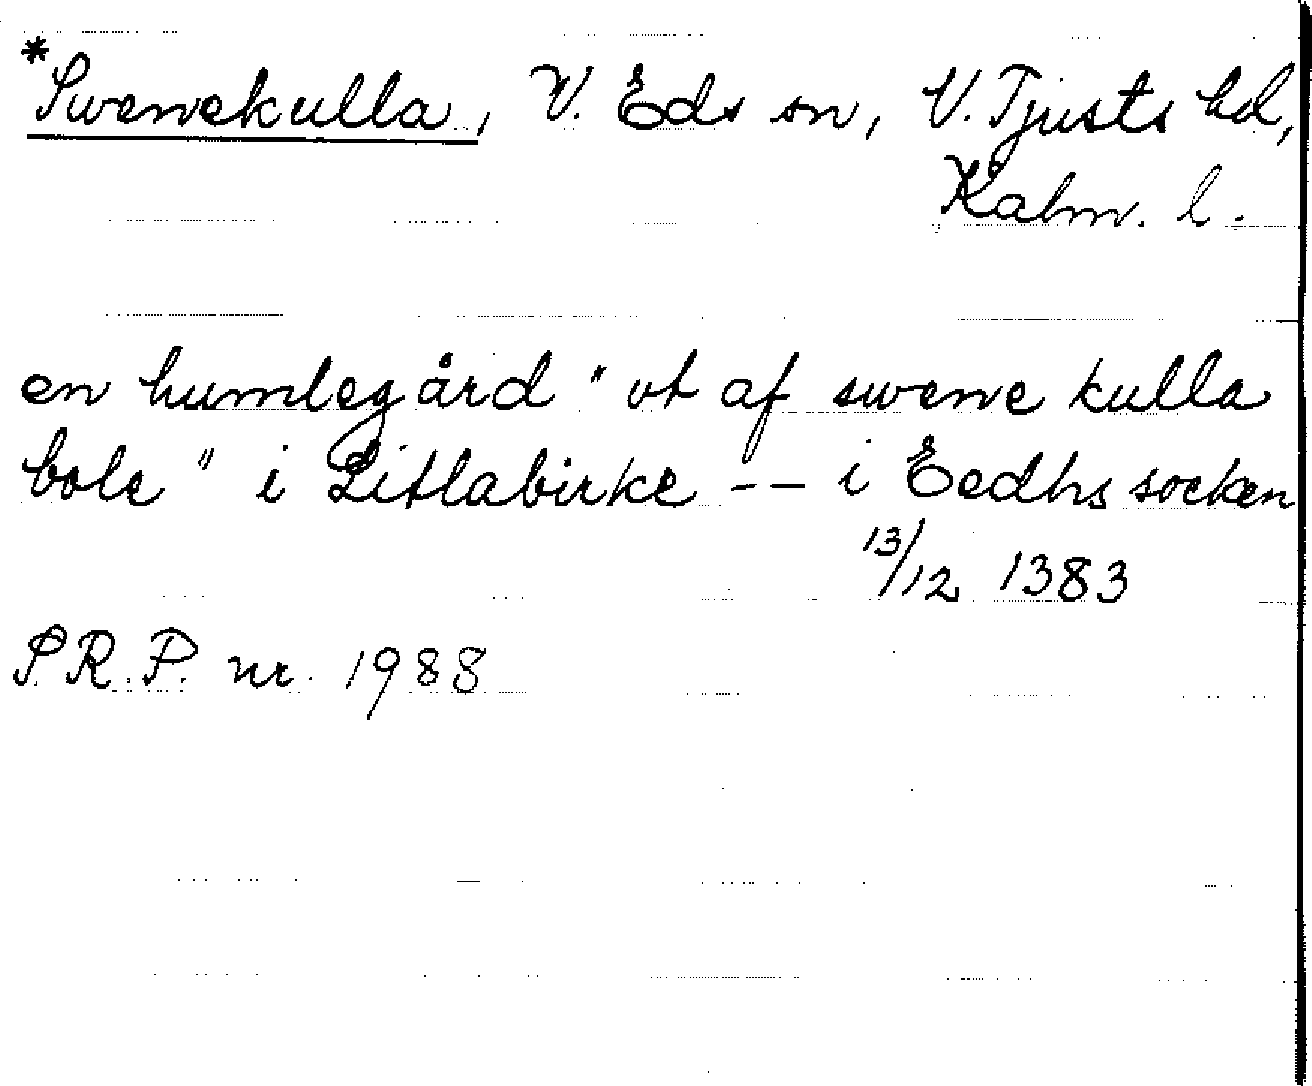 *Swenekulla, V. Eds sn, V. Tjusts hd,
Kalm. l.
en humlegård "vt af swene kulla
bole" i Litlabirke -- i Eedhs socken
13/12 1383
S.R.P. nr. 1988